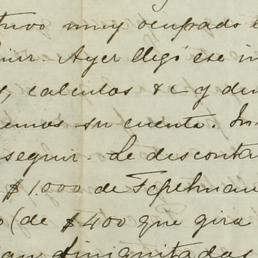 tuvo muy ocupado e
uir. Ayer llegó ese in
s, calculos &c y di
emos su cuenta. In
seguir. Le desconta
$1000 de Tepehuan
o (de $400 que gira